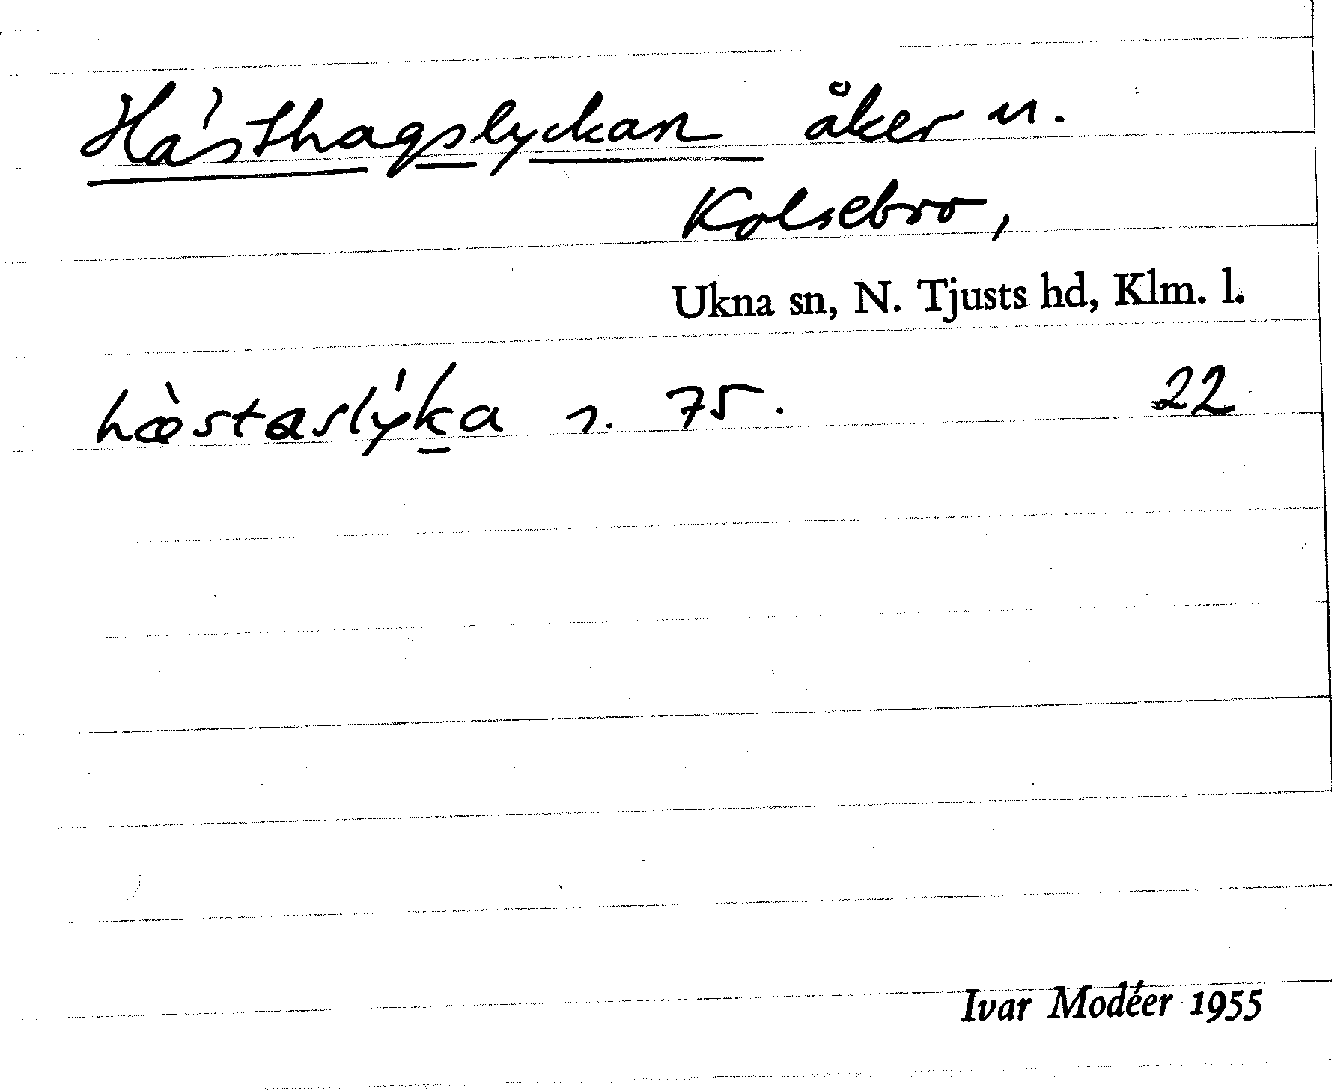 Hästhagslyckan åker u.
Kolsebro,
Ukna sn, N. Tjusts hd, Klm. l.
hæ̀staslýka n. 75. 22
Ivar Modéer 1955